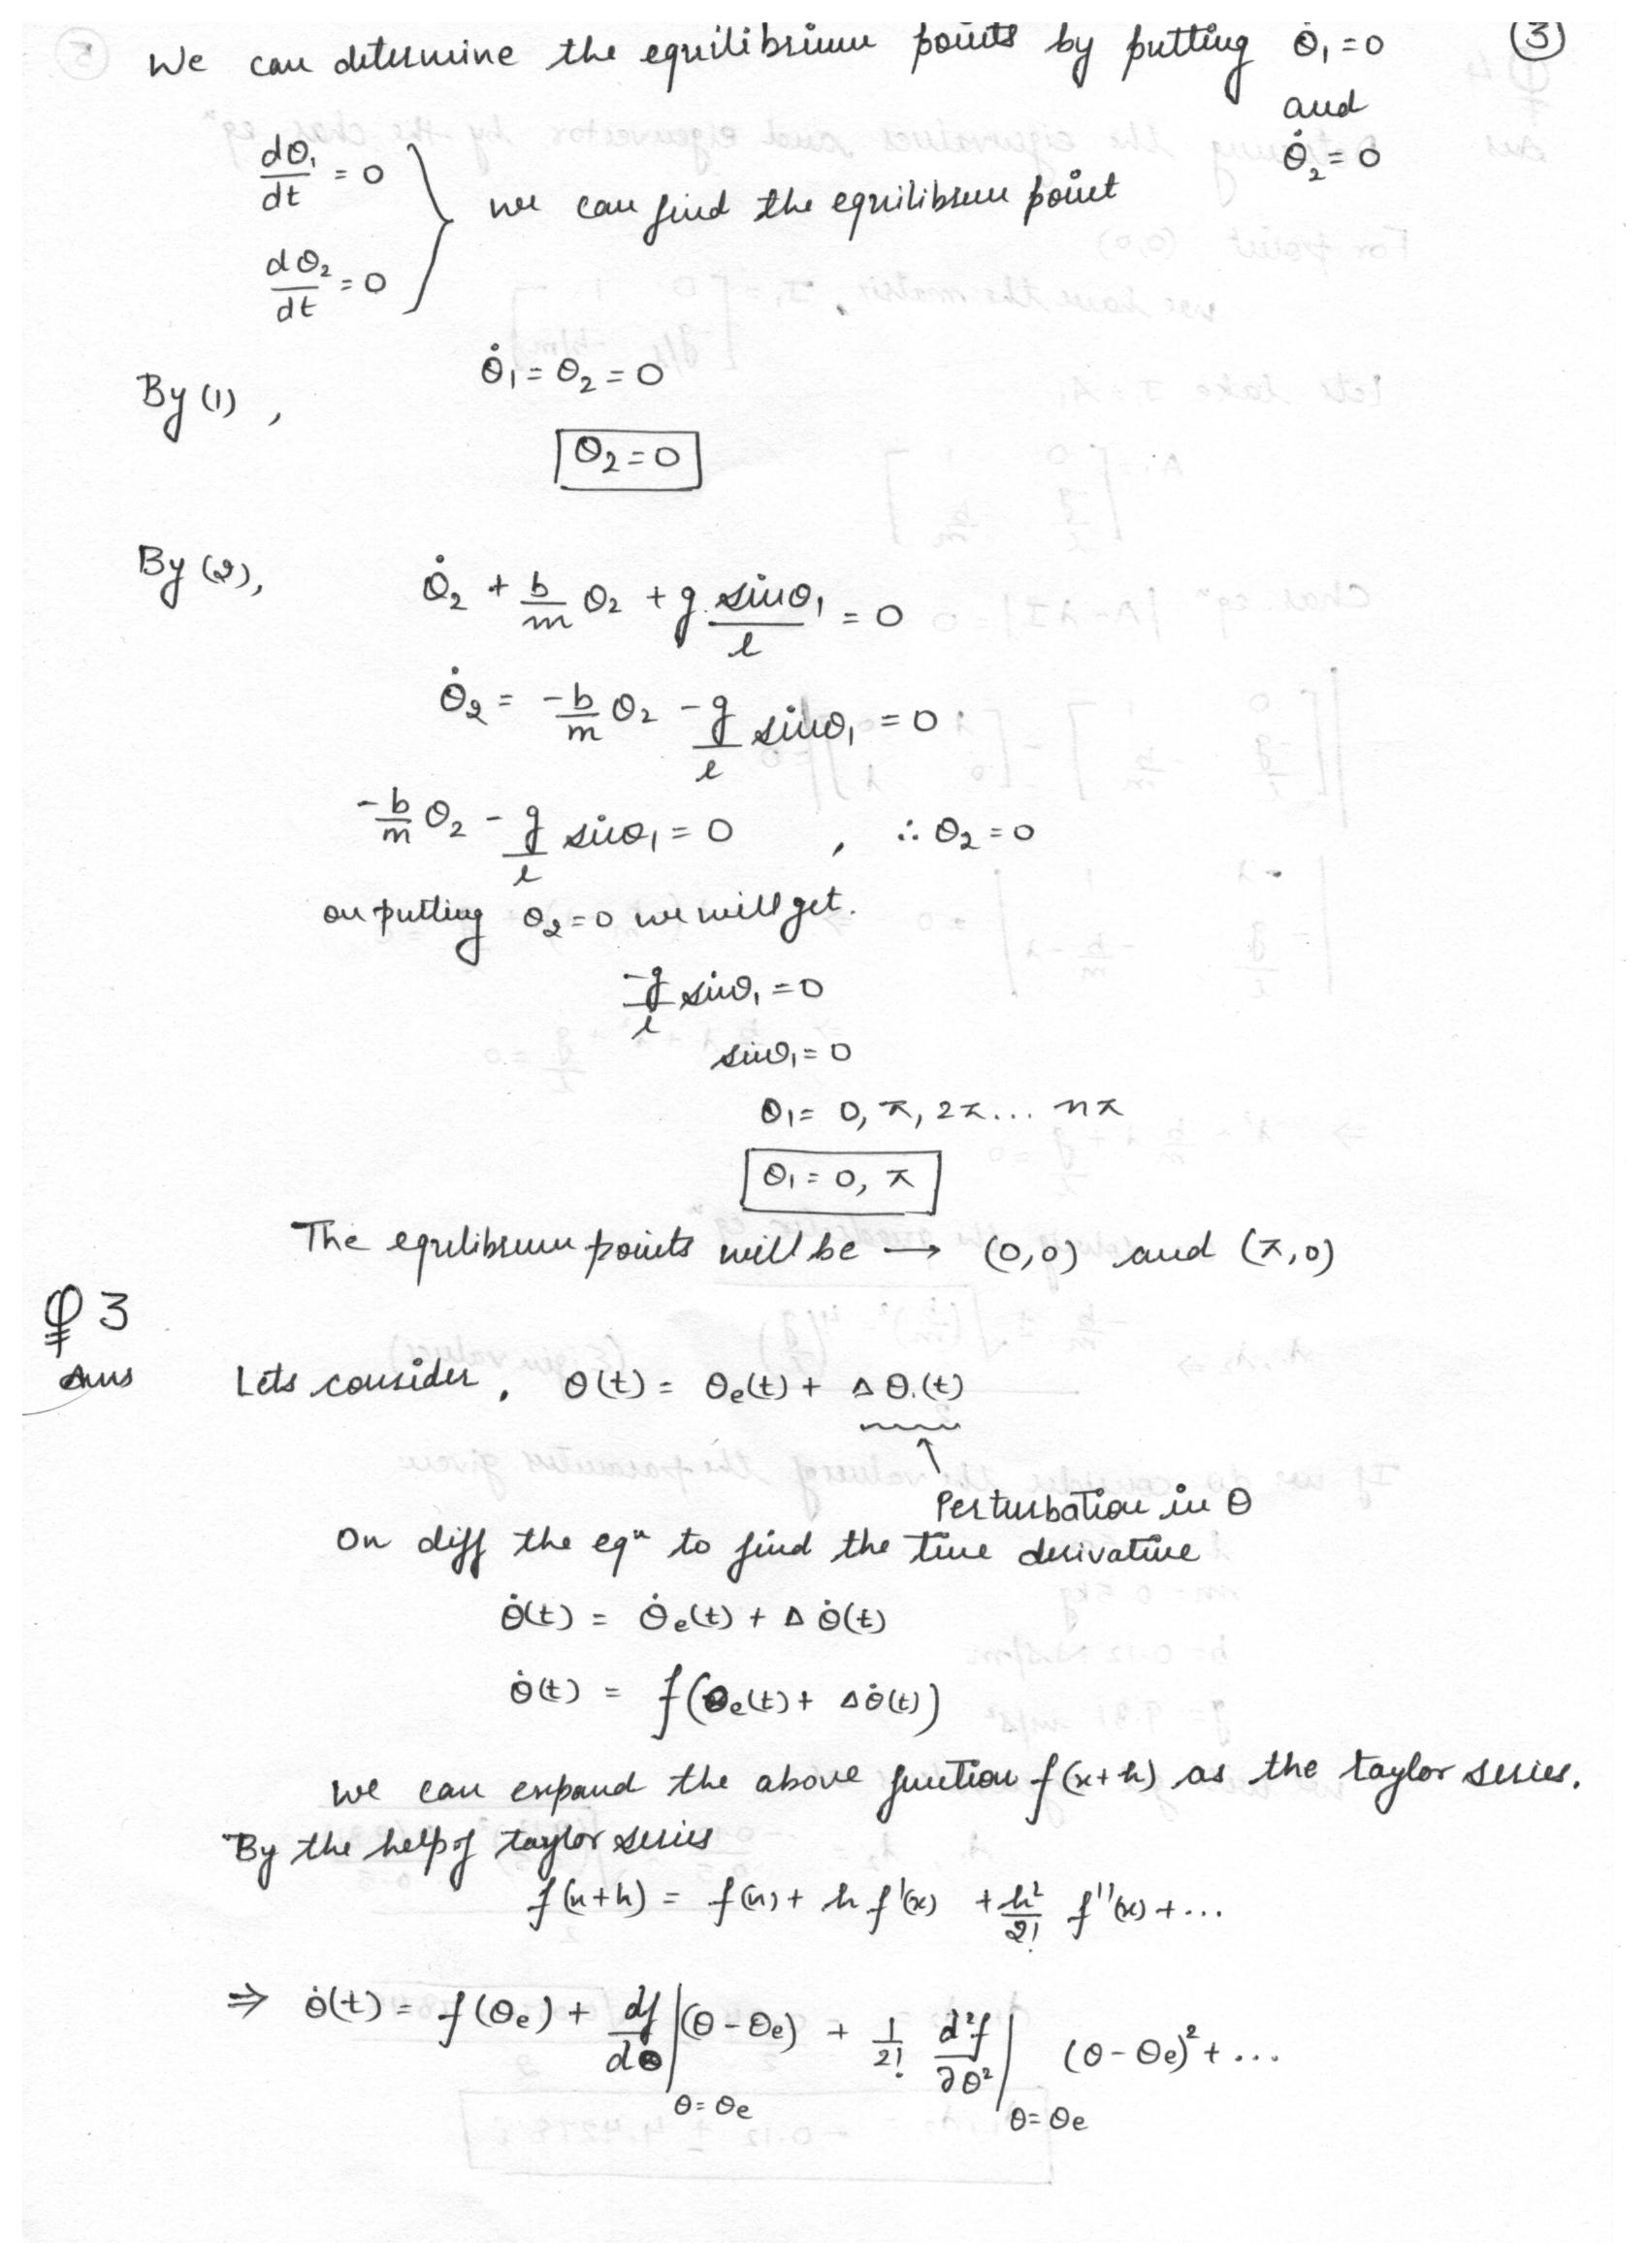 (3)
We can determine the equilibrium points by putting θ̇₁ = 0
and
θ̇₂ = 0
dθ₁/dt = 0
dθ₂/dt = 0
} we can find the equilibrium point
By (1), θ̇₁ = θ₂ = 0
θ₂ = 0
By (2), θ̇₂ + b/m θ₂ + g sinθ₁/l = 0
θ̇₂ = -b/m θ₂ - g/l sinθ₁ = 0
-b/m θ₂ - g/l sinθ₁ = 0 , ∴ θ₂ = 0
on putting θ₂ = 0 we will get.
-g/l sinθ₁ = 0
sinθ₁ = 0
θ₁ = 0, π, 2π... nπ
θ₁ = 0, π
The equilibrium points will be → (0,0) and (π,0)
Q 3
Ans Lets consider, θ(t) = θe(t) + Δθ(t)
↑
Perturbation in θ
On diff the eqⁿ to find the time derivative
θ̇(t) = θ̇e(t) + Δθ̇(t)
θ̇(t) = f(θe(t) + Δθ̇(t))
We can expand the above function f(x+h) as the taylor series.
By the help of taylor series
f(x+h) = f(x) + h f'(x) + h²/2! f''(x) + ...
⇒ θ̇(t) = f(θe) + df/dθ |θ=θe (θ - θe) + 1/2! d²f/∂θ² |θ=θe (θ - θe)² + ...